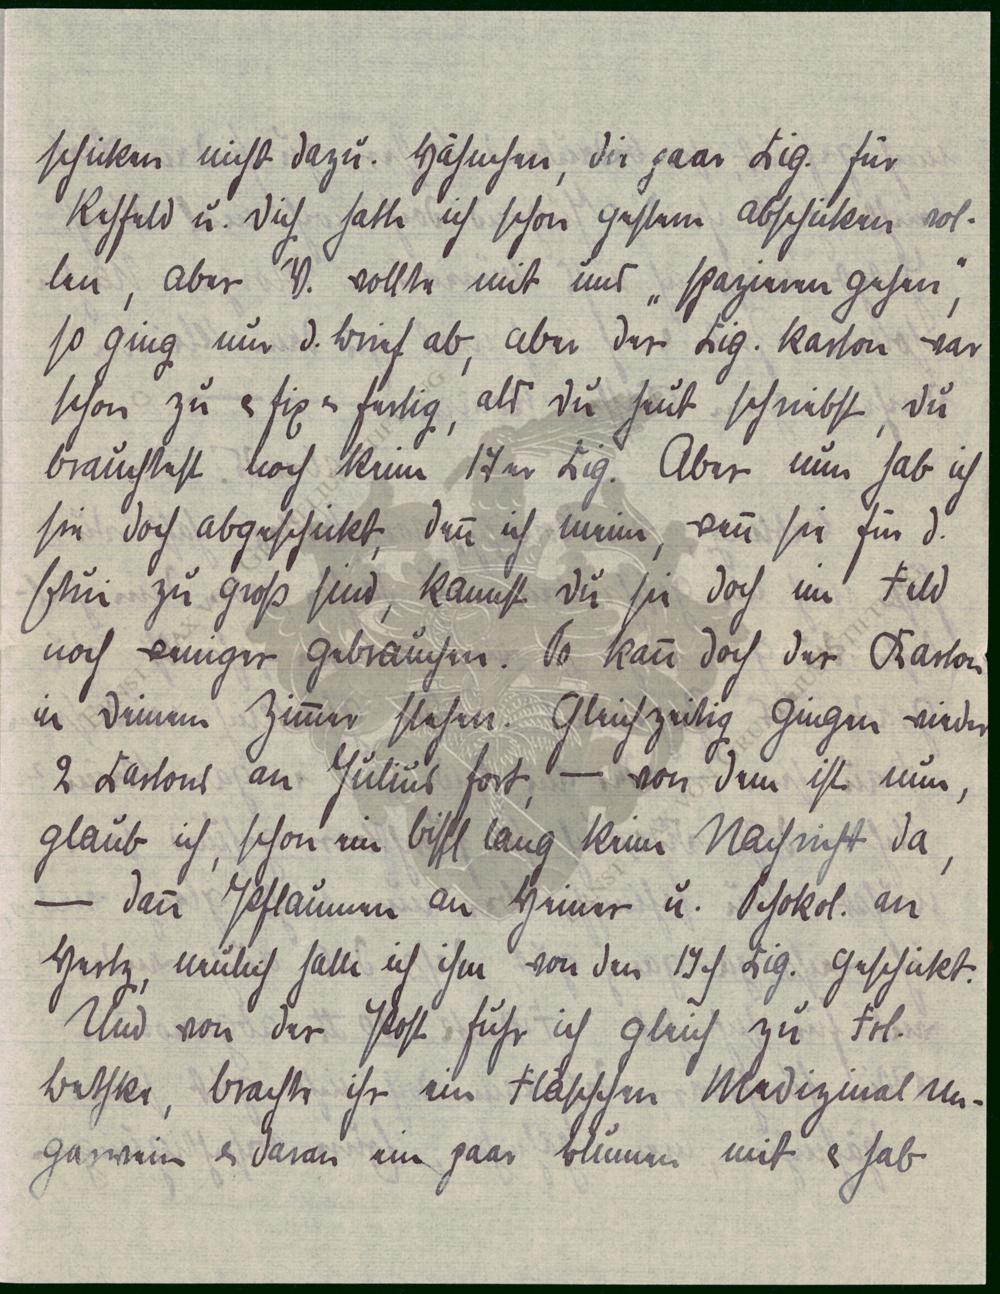 schicken nicht dazu. Hähnchen, die paar Zig. für
Rehfeld u. Dich hatte ich schon gestern abschicken wol-
len, aber V. wollte mit uns „spazieren gehen",
so ging nur d. Brief ab, aber der Zig. Karton war
schon zu & fix & fertig, als Du heut schriebst, Du
brauchtest noch keine 17er Zig. Aber nun hab ich
sie doch abgeschickt, den̄ ich meine, wen̄ sie für d.
Etui zu groß sind, kannst Du sie doch im Feld
noch weniger gebrauchen. So kan̄ doch der Karton
in Deinem Zim̄er stehen. Gleichzeitig gingen wieder
2 Kartons an Julius fort, — von dem ist nun,
glaub ich, schon ein bissl lang keine Nachricht da,
— dan̄ Pflaumen an Heiner u. Schokol. an
Hertz, neulich hatte ich ihm von den Zig. geschickt.
Und von der Post fuhr ich gleich zu Frl.
Bethke, brachte ihr ein Fläschchen Medizinal Un-
garwein & daran ein paar Blumen mit & hab